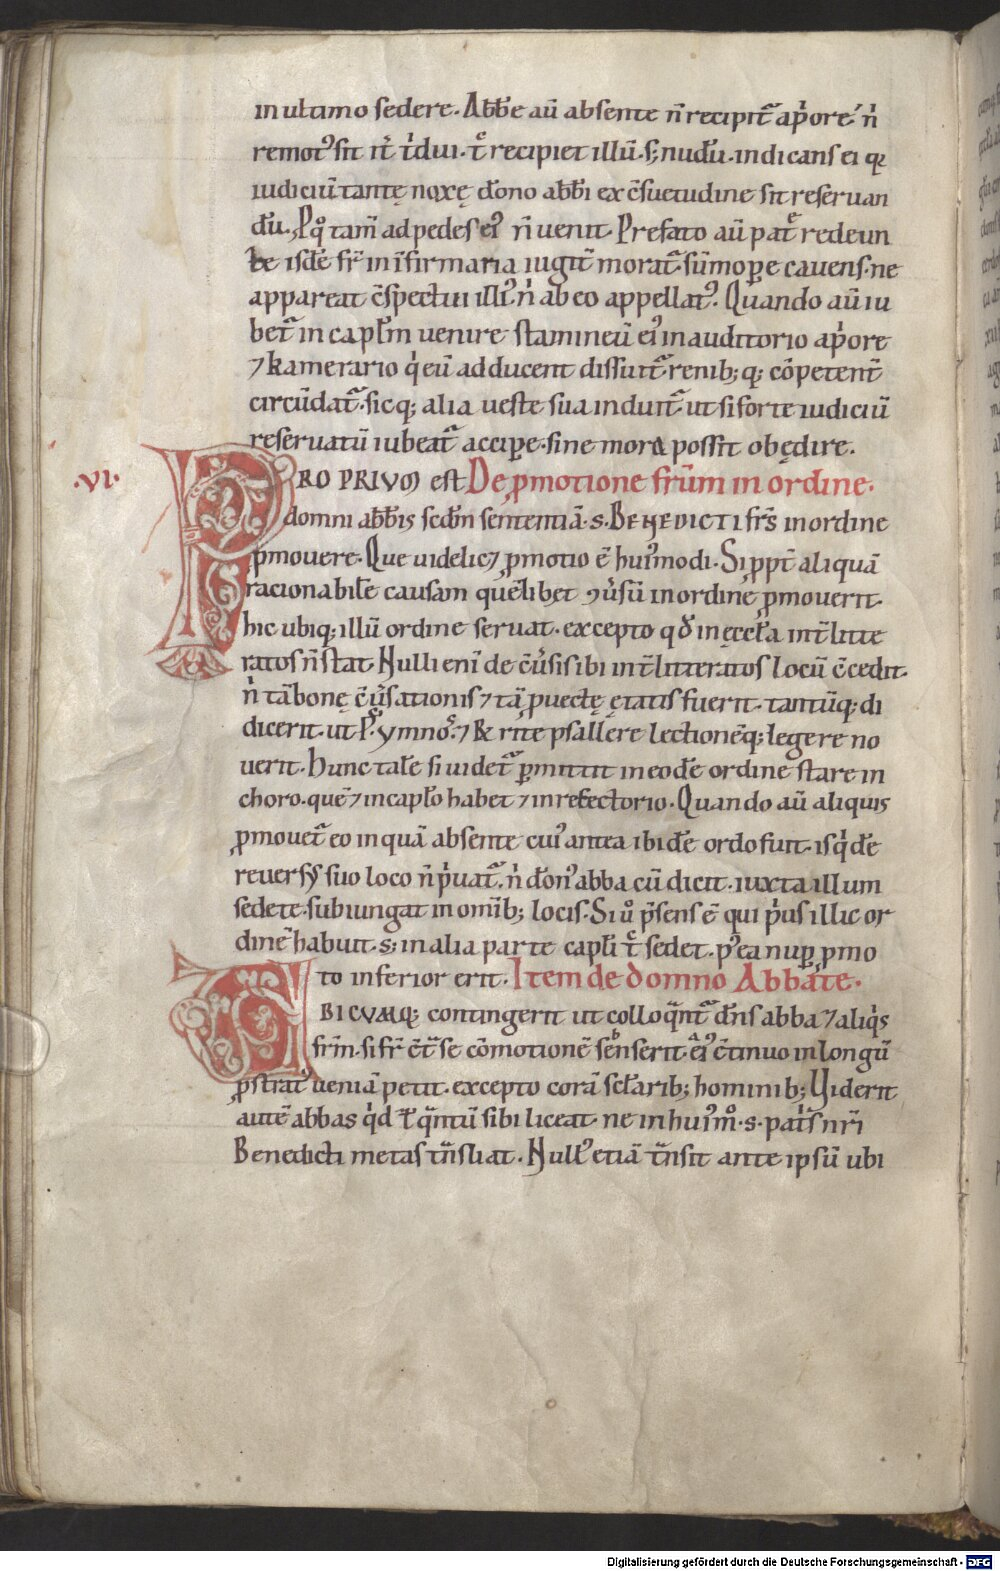 in ultimo sedere. Abb̄e aū absente n̄ recipit̄ a p̍ore. n̍
remot᾿ sit it̄ t̍dui. t̄ recipiet illū. s; nudū. indicans ei q;
iudiciū tantę noxę dōno abb̄i ex c̄suetudine sit reseruan
dū. Pq̊ tam̄ ad pedes ei᾿ n̄ uenit. Prefato aū pat̄ redeun
te isdē fr̄ in īfirmaria iugit̄ morat̄. sūmopere cauens. ne
appareat c̄spectui illi᾿. n̍ ab eo appellat᾿. Quando aū iu
bet̄ in capl̄m uenire stamineū ei᾿ in auditorio a p̍ore
⁊ kamerario q̍ eū adducent dissuit̄ renib; q; cōpetent̄
circūdat̄. sicq; alia ueste sua induit̄. ut si forte iudiciū
reseruatū iubeat̄ accipere. sine mora possit obędire.
.VI. PROPRIUM est De ꝓmotione frūm in ordine.
domni abb̄is scdm̄ sententiā .s. BENEDICTI frs̄ in ordine
ꝓmouere. Que uidelic⁊ ꝓmotio ē hui᾿modi. Si ꝓpt̄ aliquā
racionabilē causam quēlibet ꝯu̍sū in ordine ꝓmouerit.
hic ubiq; illū ordine seruat. excepto qđ in ęccl̄a int̄ litte
ratos n̄ stat. Nulli eni᾿ de c̄u̍sis sibi int̄ litteratos locū c̄cedit.
n̍ tā bonę c̄u̍sationis ⁊ tā ꝓuectę ętatis fuerit. tantūq; di
dicerit. ut Ps̄. ymnos̄. ⁊ & rite psallere lectionēq; legere no
uerit. Hunc talē si uidet̄ ꝑmittit in eodē ordine stare in
choro. quē ⁊ in capl̄o habet ⁊ in refectorio. Quando aū aliquis
ꝓmouet̄ eo in quā absente cui᾿ antea ibidē ordo fuit. is q̍dē
reuersus suo loco n̄ p̍uat̄. n̍ don᾿ abba cū dicit. iuxta illum
sedete. subiungat in omīb; locis. Si u̇ p̄sens ē qui p̍us illic or
dinē habuit. s; in alia parte capl̄i t̄ sedet. p᾿ea nuꝑ ꝓmo
to inferior erit. Item de domno Abbate.
UBICUMQ; contingerit ut colloq̄nt̄ dn̄s abba ⁊ aliq̍s
fr̄m. si fr̄ c̄t̄ se cōmotionē senserit. ei᾿ c̄tinuo in longū
ꝓstrat᾿ ueniā petit. excepto corā sclarib; hominib; Uiderit
autē abbas q̍d t̄ q̄ntū sibi liceat. ne in hui᾿m̊ .s. pat̍s nr̄i
Benedicti metas tn̄sliat. Null᾿ etiā tn̄sit ante ipsū ubi
Digitalisierung gefördert durch die Deutsche Forschungsgemeinschaft - DFG